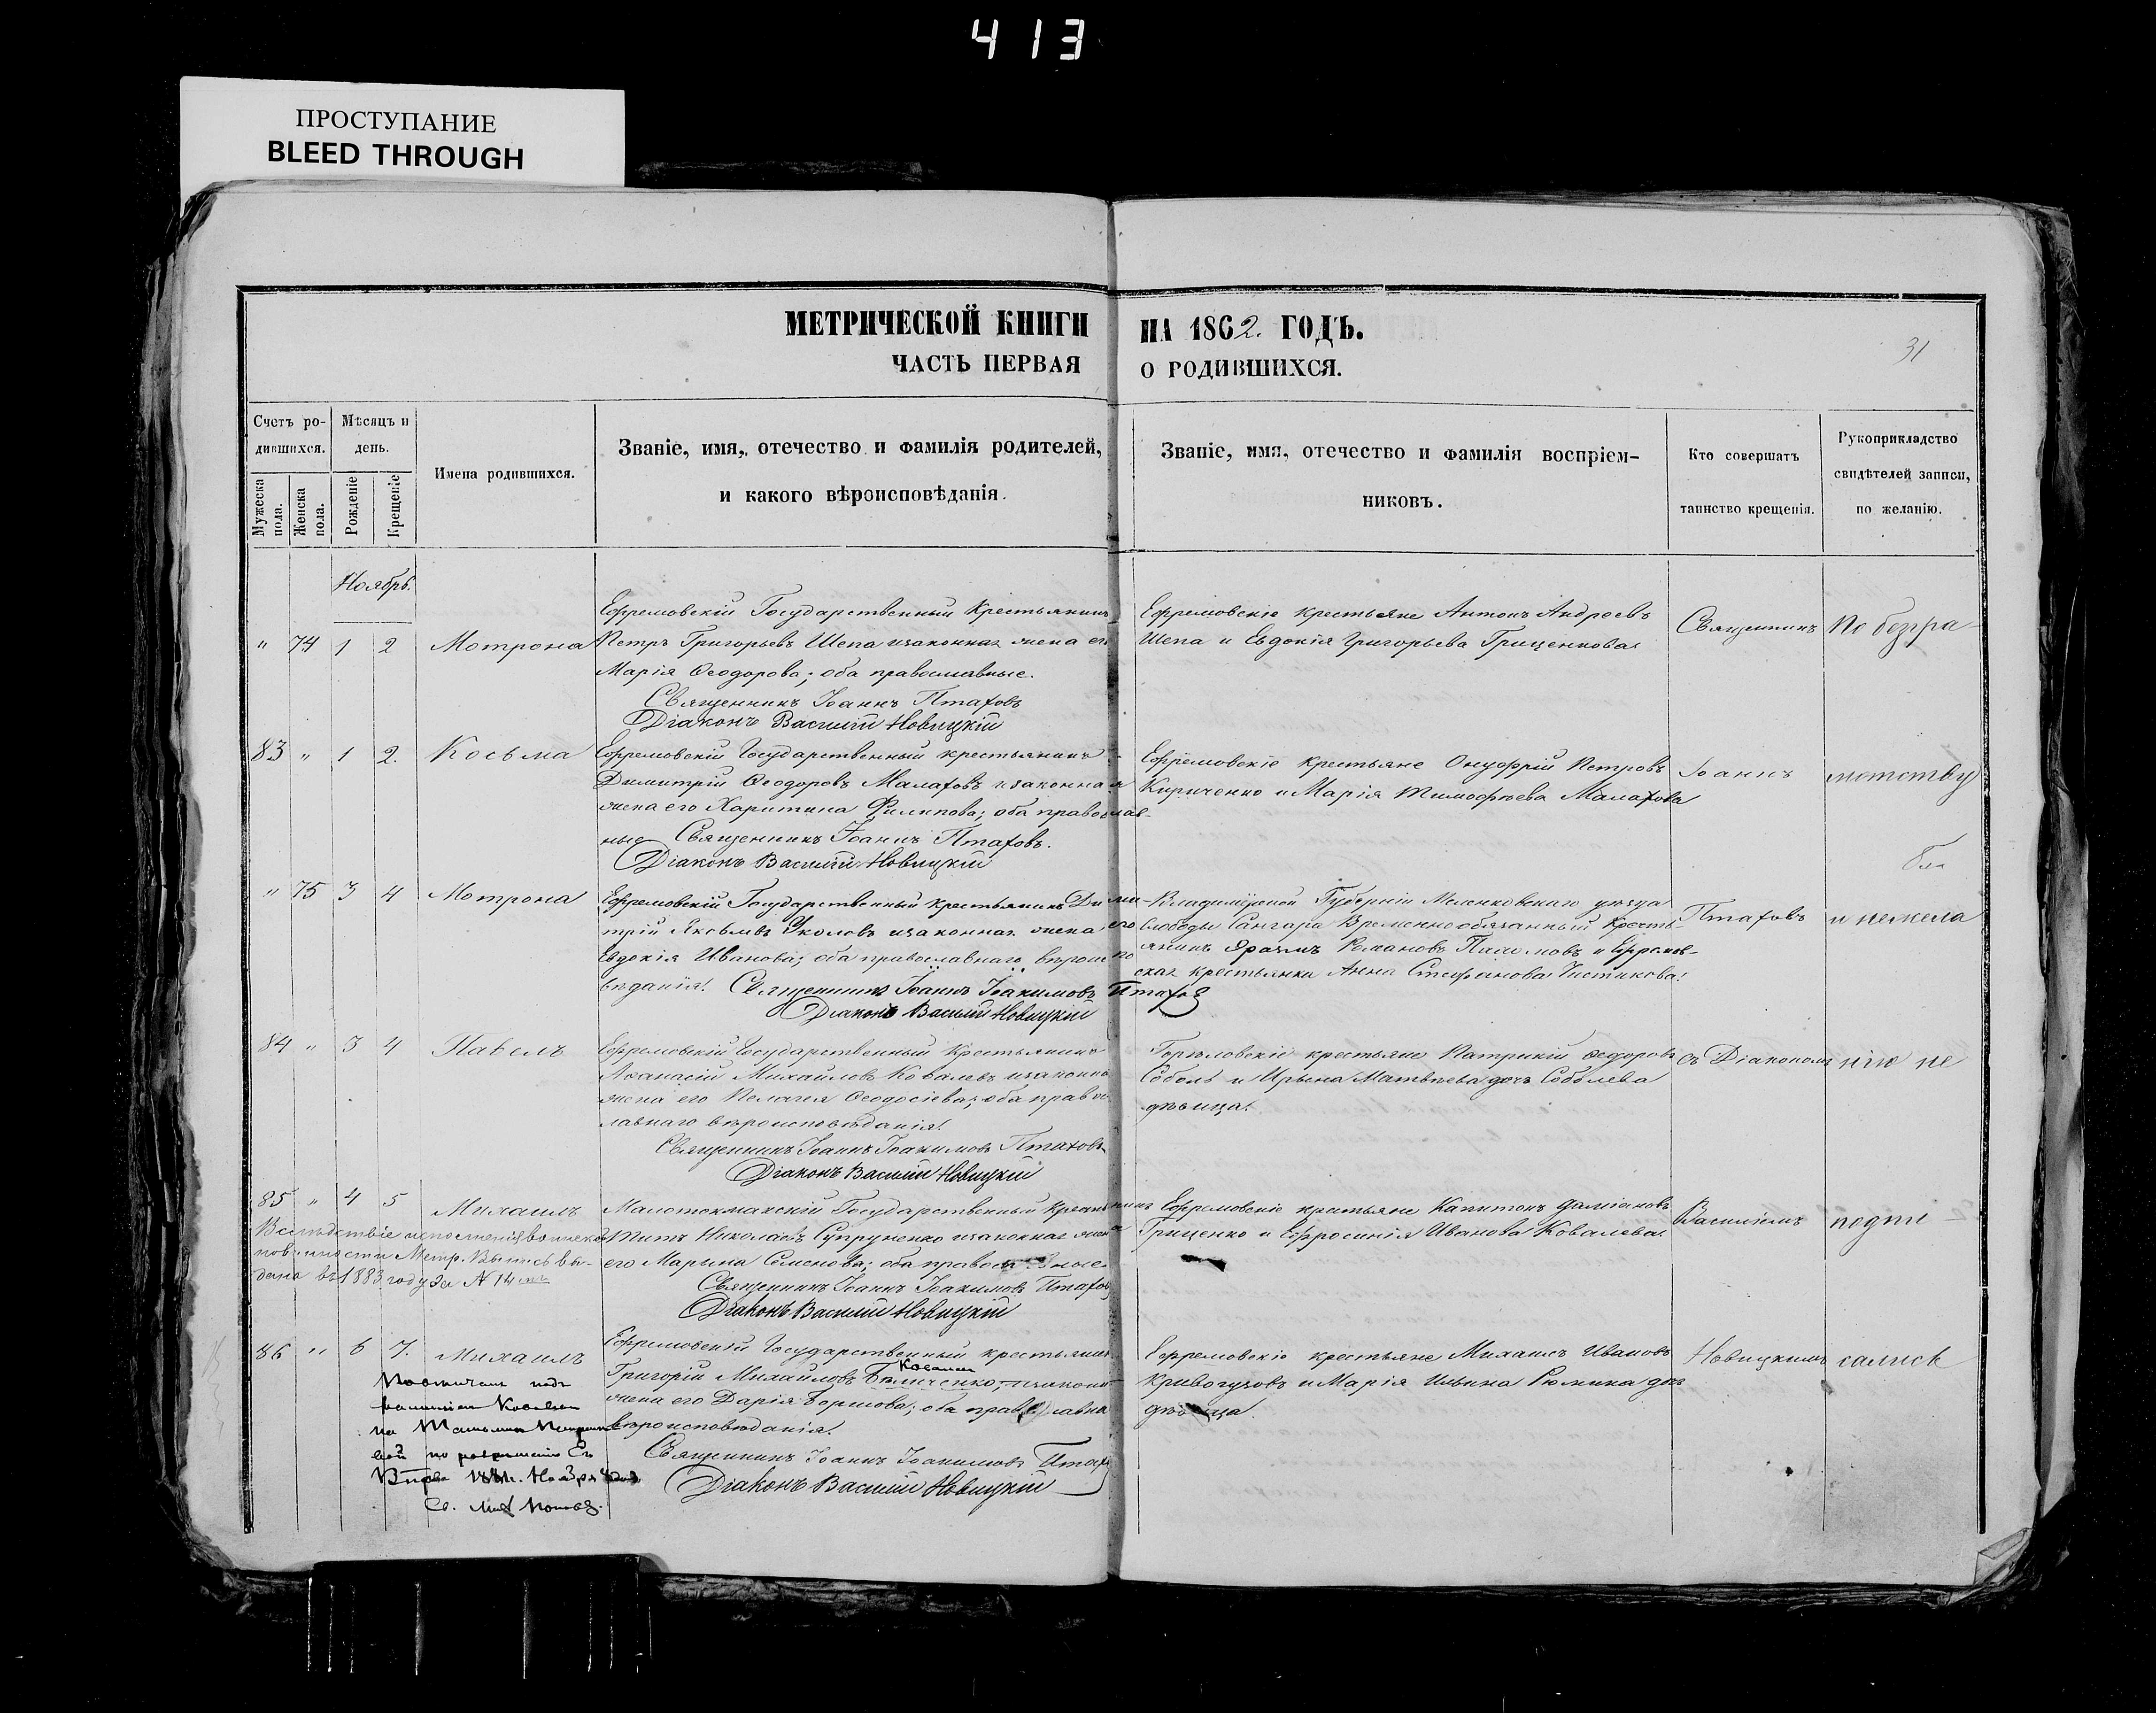 413
ПРОСТУПАНИЕ
BLEED THROUGH
МЕТРИЧЕСКОЙ КНИГИ НА 1862. ГОДЪ.
ЧАСТЬ ПЕРВАЯ О РОДИВШИХСЯ.
31
Счетъ ро-
дившихся.
Мужеска пола.
Женска пола.
Мѣсяцъ и
день.
Рожденіе
Крещеніе
Имена родившихся.
Званіе, имя, отечество и фамилія родителей,
и какого вѣроисповѣданія.
Званіе, имя, отечество и фамилія воспріем-
никовъ.
Кто совершалъ
таинство крещенія.
Рукоприкладство
свидѣтелей записи,
по желанію.
Ноябрь.
" 74 1 2 Мотрона
Ефремовскій Государственный Крестьянинъ
Петръ Григорьевъ Шепа и законная жена его
Марія Ѳеодорова; оба православные.
Священникъ Іоаннъ Птаховъ
Діаконъ Василій Новицкій
Ефремовскіе крестьяне Антонъ Андреевъ
Шепа и Евдокія Григорьева Гриценкова
Священникъ
По безгра-
83 " 1 2. Косьма
Ефремовскій Государственный крестьянинъ
Димитрій Ѳеодоровъ Малаховъ и законная
жена его Харитина Филипова; оба православ-
ные Священникъ Іоаннъ Птаховъ.
Діаконъ Василій Новицкій
Ефремовскіе крестьяне Онуфрій Петровъ
Кириченко и Марія Тимофѣева Малахова
Іоаннъ
мотству
" 75 3 4 Мотрона
Ефремовскій Государственный крестьянинъ Дими-
трій Яковлевъ Уколовъ и законная жена его
Евдокія Иванова; оба православнаго вѣроиспо
вѣданія. Священникъ Іоаннъ Іоакимовъ Птаховъ
Діаконъ Василій Новицкій
Владимірской Губерніи Меленковскаго уѣзда
слободы Сангара Временнообязанный Кресть-
янинъ Романовъ и Ефремов-
ская крестьянка Анна Стефанова Чистикова.
Птаховъ
и нежела
84 " 3 4 Павелъ
Ефремовскій Государственный Крестьянинъ
Аѳанасій Михайловъ Ковалевъ и законна
жена его Пелагея Ѳеодосіева; оба правос
лавнаго вѣроисповѣданія.
Священникъ Іоаннъ Іоакимовъ Птаховъ
Діаконъ Василій Новицкій
крестьяне Патрикій Ѳедоровъ
Соболь и Ирына Матвѣева дочь Соболева
дѣвица.
съ Діакономъ
нію не
85 " 4 5 Михаилъ
Вслѣдствіе исполненія воинской
повинности Метр. Выпись вы-
дана въ 1883 году за № 14
Малотокмакскій Государственный Крестьянинъ
Титъ Николаевъ Супруненко и законная жена
его Марина Семенова; оба православные.
Священникъ Іоаннъ Іоакимовъ Птаховъ
Діаконъ Василій Новицкій
Ефремовскіе крестьяне Капитонъ Даміановъ
Гриценко и Ефросинія Иванова Ковалева.
Василіемъ
подпи-
86 " 6 7. Михаилъ
Ефремовскій Государственный крестьянинъ
Григорій Михайловъ
жена его Дарія оба православна
вѣроисповѣданія.
Священникъ Іоаннъ Іоакимовъ Птахов
Діаконъ Василій Новицкій
Ефремовскіе крестьяне Михаилъ Ивановъ
Кривогузовъ и Марія Ильина дочь
дѣвица.
Новицкимъ
сались